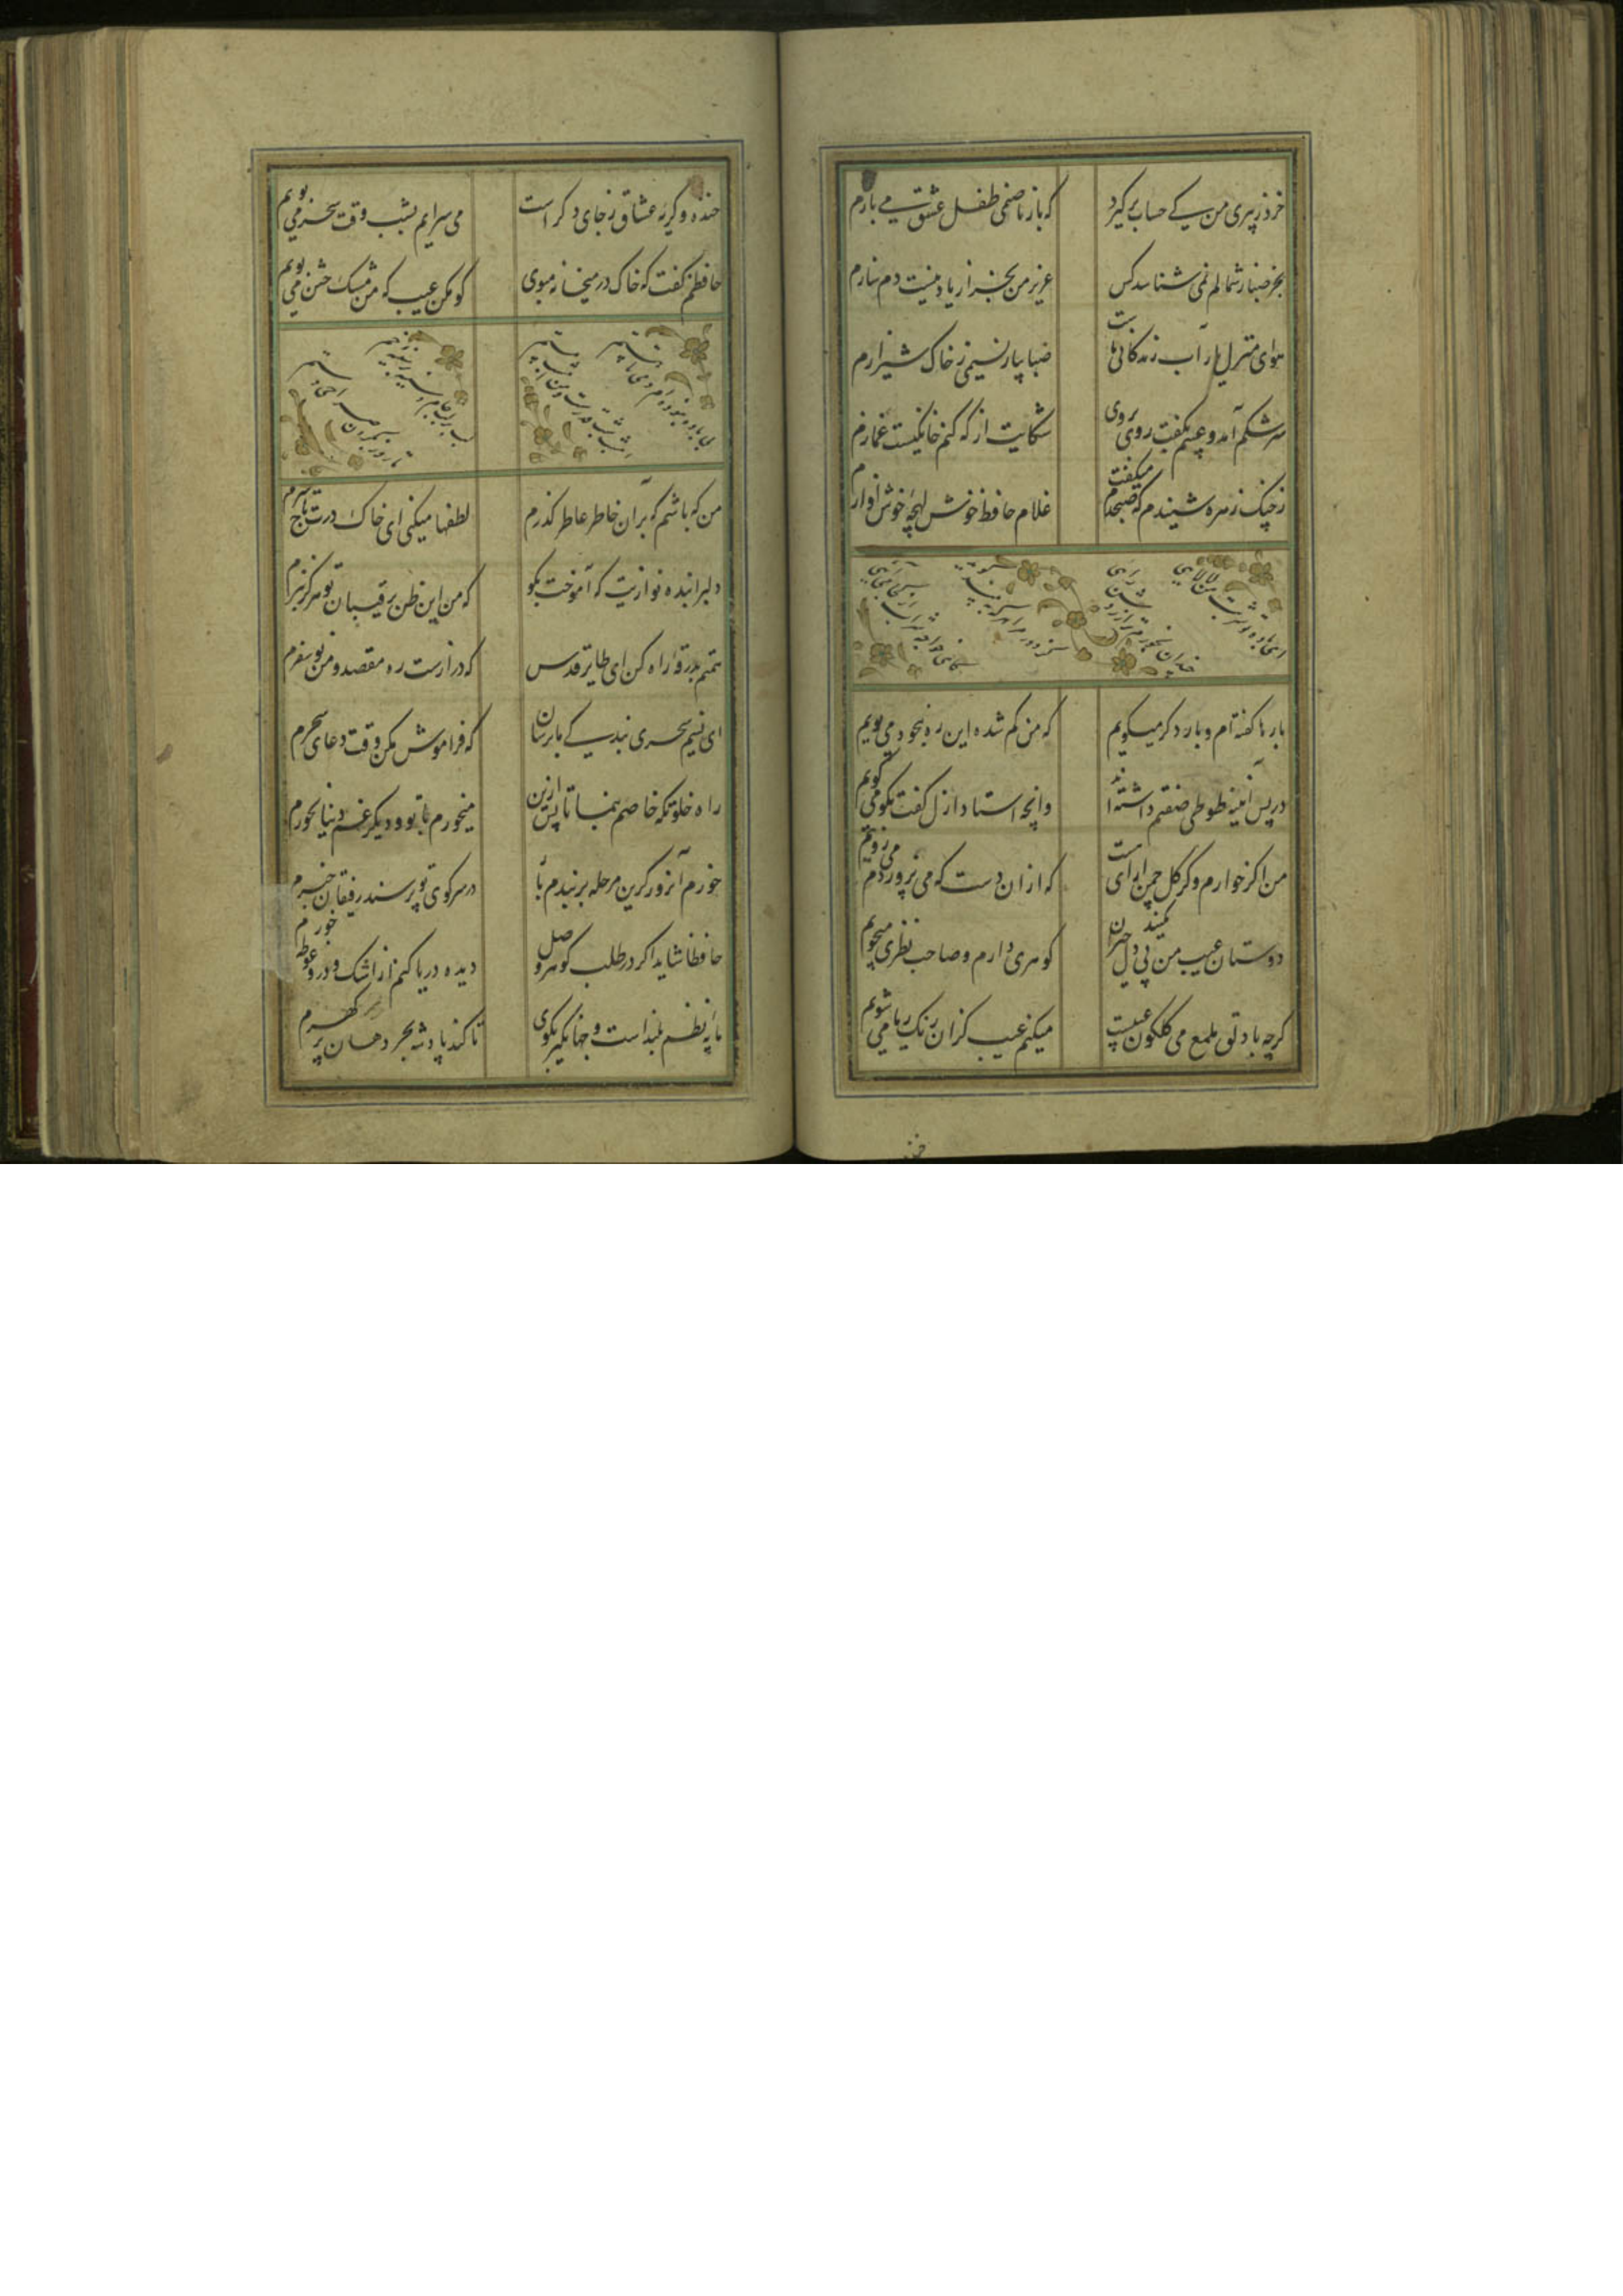 خرد ز پیری من کی حساب برگیرد
که باز با صنمی طفل عشق می بازم
بجز صبا و شمالم نمی شناسد کس
عزیز من بجز از باد نیست دم سازم
هوای منزل یار آب زندگانی ماست
صبا بیار نسیمی ز خاک شیرازم
سرشکم آمد و عیبم بگفت روی بروی
شکایت از که کنم خانگیست غمازم
ز چنگ زهره شنیدم که صبحدم میگفت
غلام حافظ خوش لهجه خوش آوازم
بارها گفته ام و بار دگر میگویم
که من گم شده این ره نه بخود می پویم
در پس آینه طوطی صفتم داشته اند
وانچه استاد ازل گفت بگو می گویم
من اگر خوارم و گر گل چمن آرای است
که از آن دست که می پروردم می رویم
دوستان عیب من بی دل حیران مکنید
گوهری دارم و صاحب نظری میجویم
گرچه با دلق ملمع می گلگون عیبست
میکنم عیب کزان رنگ ریا می شویم
خنده و گریه عشاق ز جای دگر است
می سرایم بشب و وقت سحر می مویم
حافظم گفت که خاک در میخانه مبوی
گو مکن عیب که من مشک ختن می بویم
من که باشم که بر آن خاطر عاطر گذرم
لطفها میکنی ای خاک درت تاج سرم
دلبرا بنده نوازیت که آموخت بگو
که من این ظن برقیبان تو هرگز نبرم
همتم بدرقه راه کن ای طایر قدس
که درازست ره مقصد و من نو سفرم
ای نسیم سحری بندگی ما برسان
که فراموش مکن وقت دعای سحرم
راه خلوتگه خاصم بنما تا پس ازین
میخورم با تو و دیگر غم دنیا نخورم
خرم آنروز کزین مرحله بربندم بار
در سر کوی تو پرسند رفیقان خبرم
حافظا شاید اگر در طلب گوهر وصل
دیده دریا کنم از اشک و درو غوطه خورم
پایه نظم بلند است و جهانگیر بگوی
تا کند پادشه بحر دهان پر گهرم